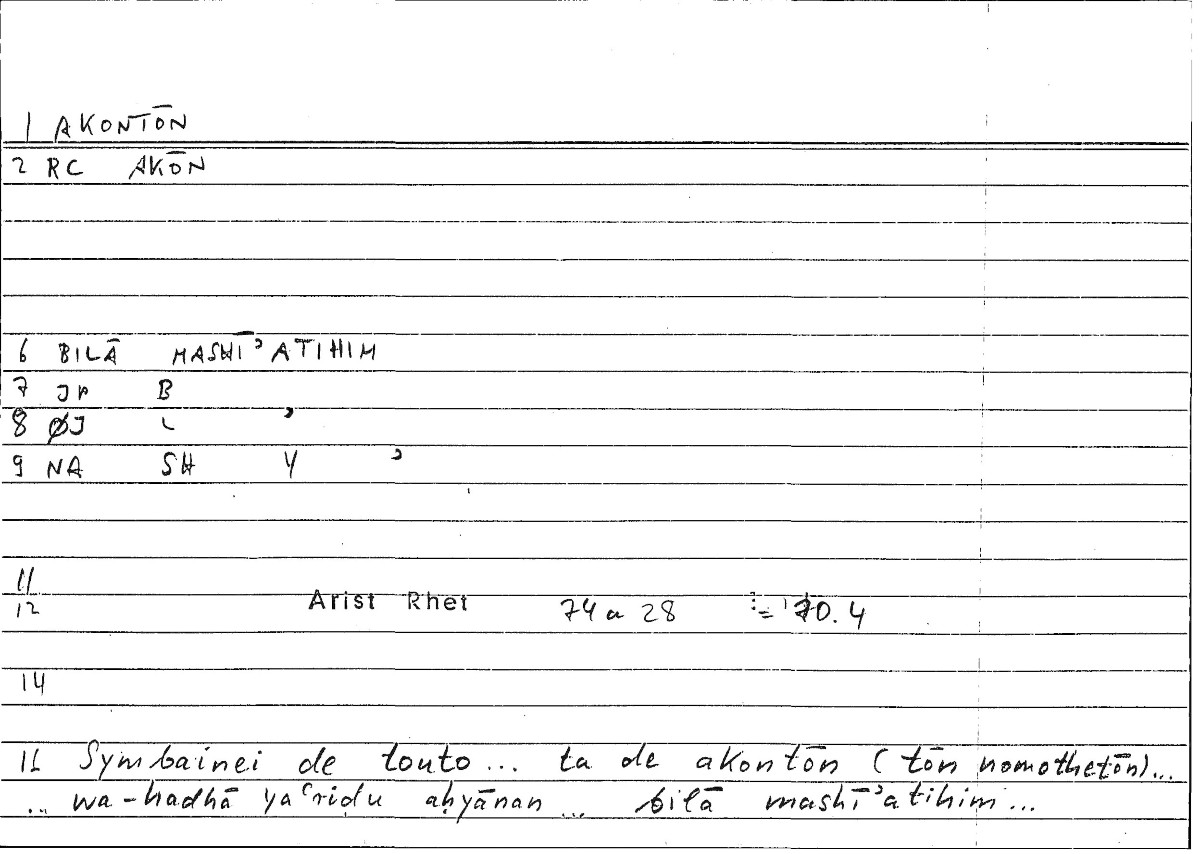 1 AKONTŌN
2 RC AKŌN
6 BILĀ MASHĪʾATIHIM
7 JP B
8 ØJ L ʾ
9 NA SH Y ʾ
11
12 Arist Rhet 74 a 28 = 70.4
14
16 Symbainei de touto... ta de akontōn (tōn nomothetōn)...
... wa-hadhā yaʿriḍu aḥyānan ... bilā mashīʾatihim...